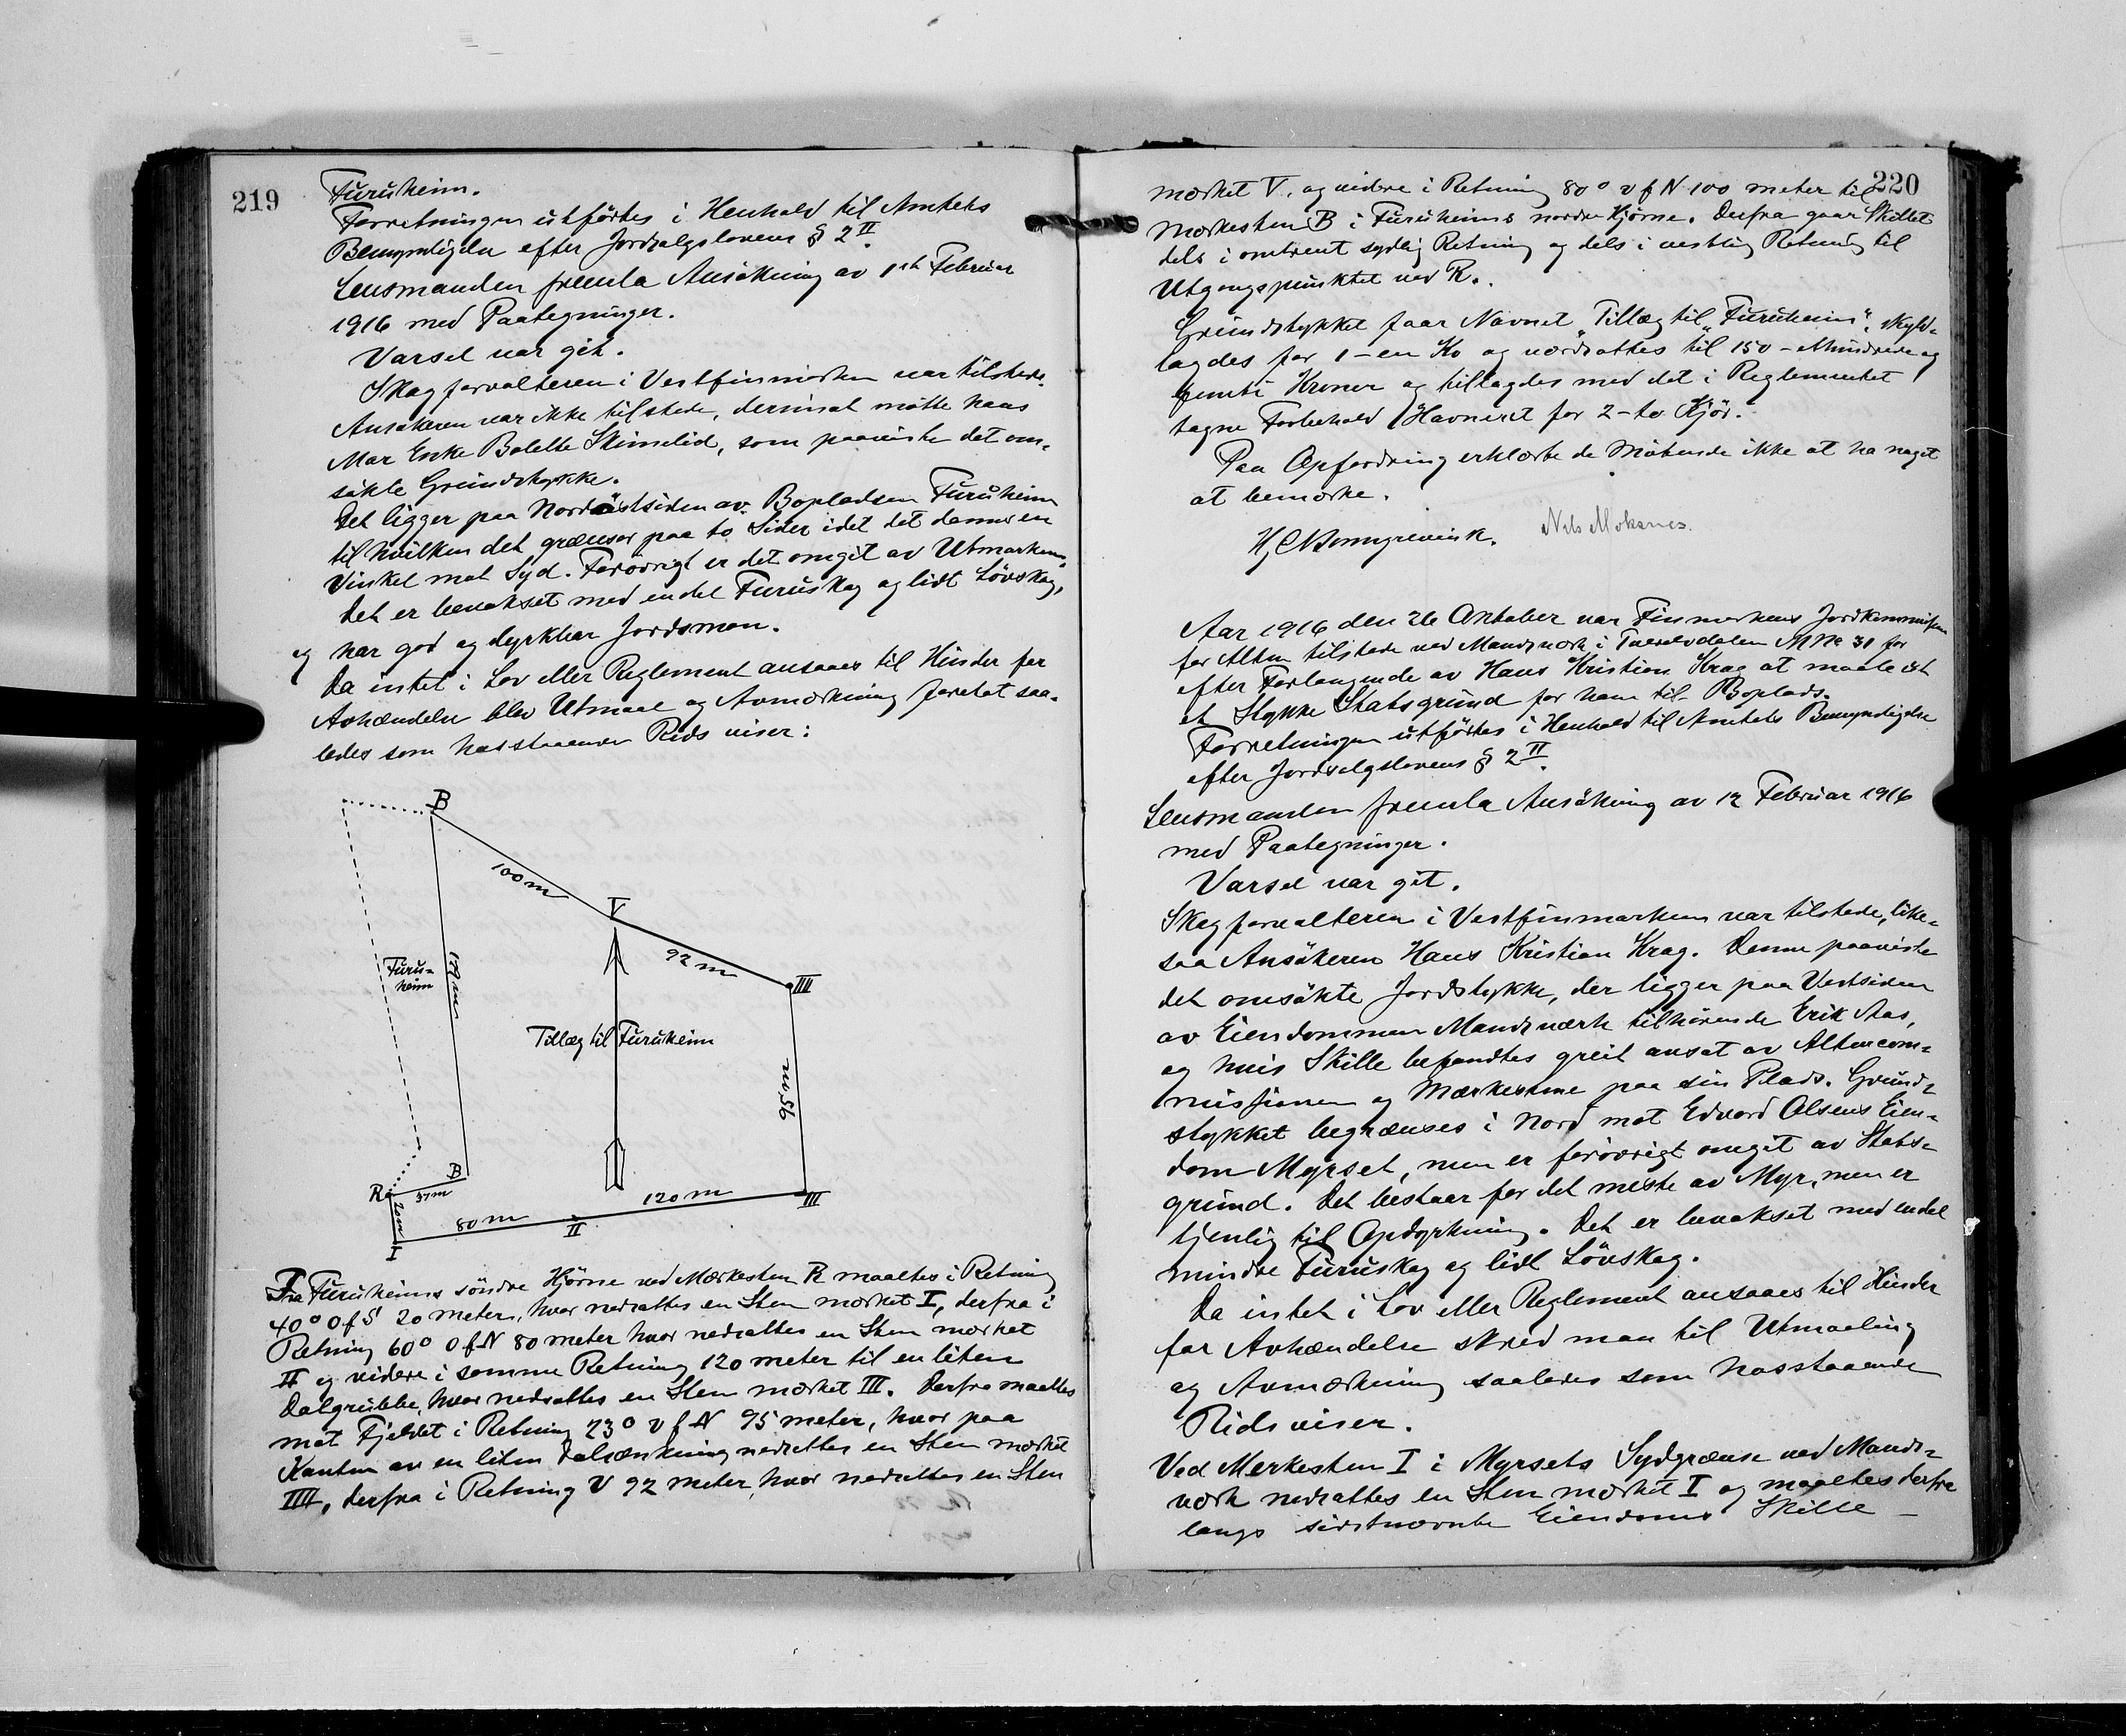 219
Furuheim.
Forretningen utförtes i Henhold til Amtets
Bemyndigelse efter Jordsalgslovens § 2 II.
Lensmanden fremla Ansökning av 1ste Februar
1916 med Paategninger.
Varsel var git.
Skogforvalteren i Vestfinmarken var tilstede.
Ansökeren var ikke tilstede, derimot mötte hans
Mor Enke Bolette Skimelid, som paaviste det om-
sökte Grundstykke.
Det ligger paa Nordöstsiden av Bopladsen Furuheim
til hvilken det grænser paa to Sider idet det danner en
Vinkel mot Syd. Forövrigt er det omgit av Utmarken.
Det er bevokset med endel Furuskog og lidt Lövskog,
og har god og dyrkbar Jordsmon.
Da intet i Lov eller Reglement ansaaes til Hinder for
Avhændelse blev Utmaal og Avmerkning foretat saa-
ledes som hosstaaende Rids viser:
B
100 m
V
92 m
IIII
Furu-
heim
179 m
Tillæg til Furuheim
95 m
B
R
37 m
20 m
120 m
III
80 m
II
I
Fra Furuheims söndre Hjörne ved Merkesten R maaltes i Retning
40° O f S 20 meter, hvor nedsattes en Sten merket I, derfra i
Retning 60° O f N 80 meter hvor nedsattes en Sten merket
II og videre i samme Retning 120 meter til en liten
Dalgrubbe, hvor nedsattes en Sten merket III. Derfra maaltes
mot Fjeldet i Retning 23° V f N 95 meter, hvor paa
Kanten av en liten Dalsænkning nedsattes en Sten merket
IIII, derfra i Retning V 92 meter, hvor nedsattes en Sten
220
merket V, og videre i Retning 80° V f N 100 meter til
Merkesten B i Furuheims nordre Hjörne. Derfra gaar Skillet
dels i omtrent sydlig Retning og dels i vestlig Retning til
Utgangspunktet ved R.
Grundstykket faar Navnet „Tillæg til „Furuheim", skyld-
lagdes for 1 - en Ko og værdsattes til 150 - etthundrede og
femti Kroner og tillagdes med det i Reglementet
tagne Forbehold Havneret for 2 - to Kjör.
Paa Opfordring erklærte de Mötende ikke at ha noget
at bemerke.
Nils Moksnes.
Aar 1916 den 26 Oktober var Finmarkens Jordkommission
for Alten tilstede ved Mandsverk i Tverelvdalen MNo 31 for
efter Forlangende av Hans Kristian Krog at maale ut
et Stykke Statsgrund for ham til Boplads.
Forretningen utförtes i Henhold til Amtets Bemyndigelse
efter Jordsalgslovens § 2 II.
Lensmanden fremla Ansökning av 12 Februar 1916
med Paategninger.
Varsel var git.
Skogforvalteren i Vestfinmarken var tilstede, like-
saa Ansökeren Hans Kristian Krog. Denne paaviste
det omsökte Jordstykke, der ligger paa Vestsiden
av Eiendommen Mandsverk tilhörende Erik Aas,
og hvis Skille befandtes greit ansat av Altencom-
missionen og Merkestene paa sin Plads. Grund-
stykket begrænses i Nord mot Edvard Olsens Eien-
dom Myrset, men er forövrigt omgit av Stats-
grund. Det bestaar for det meste av Myr, men er
tjenlig til Opdyrkning. Det er bevokset med endel
mindre Furuskog og lidt Lövskog.
Da intet i Lov eller Reglement ansaaes til Hinder
for Avhændelse skred man til Utmaaling
og Avmerkning saaledes som hosstaaende
Rids viser.
Ved Merkesten I i Myrsets Sydgrænse ved Mands-
verk nedsattes en Sten merket I og maaltes derfra
langs sidstnævnte Eiendoms Skille